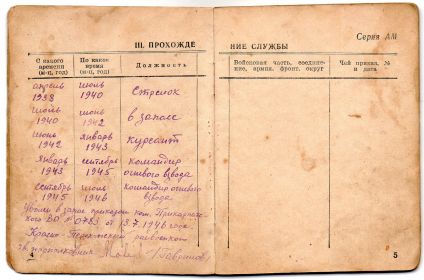 III. ПРОХОЖДЕНИЕ СЛУЖБЫ
Серия АМ
С какого времени (м-ц, год)
По какое время (м-ц, год)
Должность
Войсковая часть, соединение, армия, фронт, округ
Чей приказ, № и дата
апрель 1938 июнь 1940 Стрелок
июнь 1940 июнь 1942 в запасе
июнь 1942 январь 1943 курсант
январь 1943 сентябрь 1945 командир огневого взвода
сентябрь 1945 июнь 1946 командир огневого взвода
Уволен в запас приказом ком. Прикарпатс-
кого ВО № 0783 от 13.7.1946 года
4
5